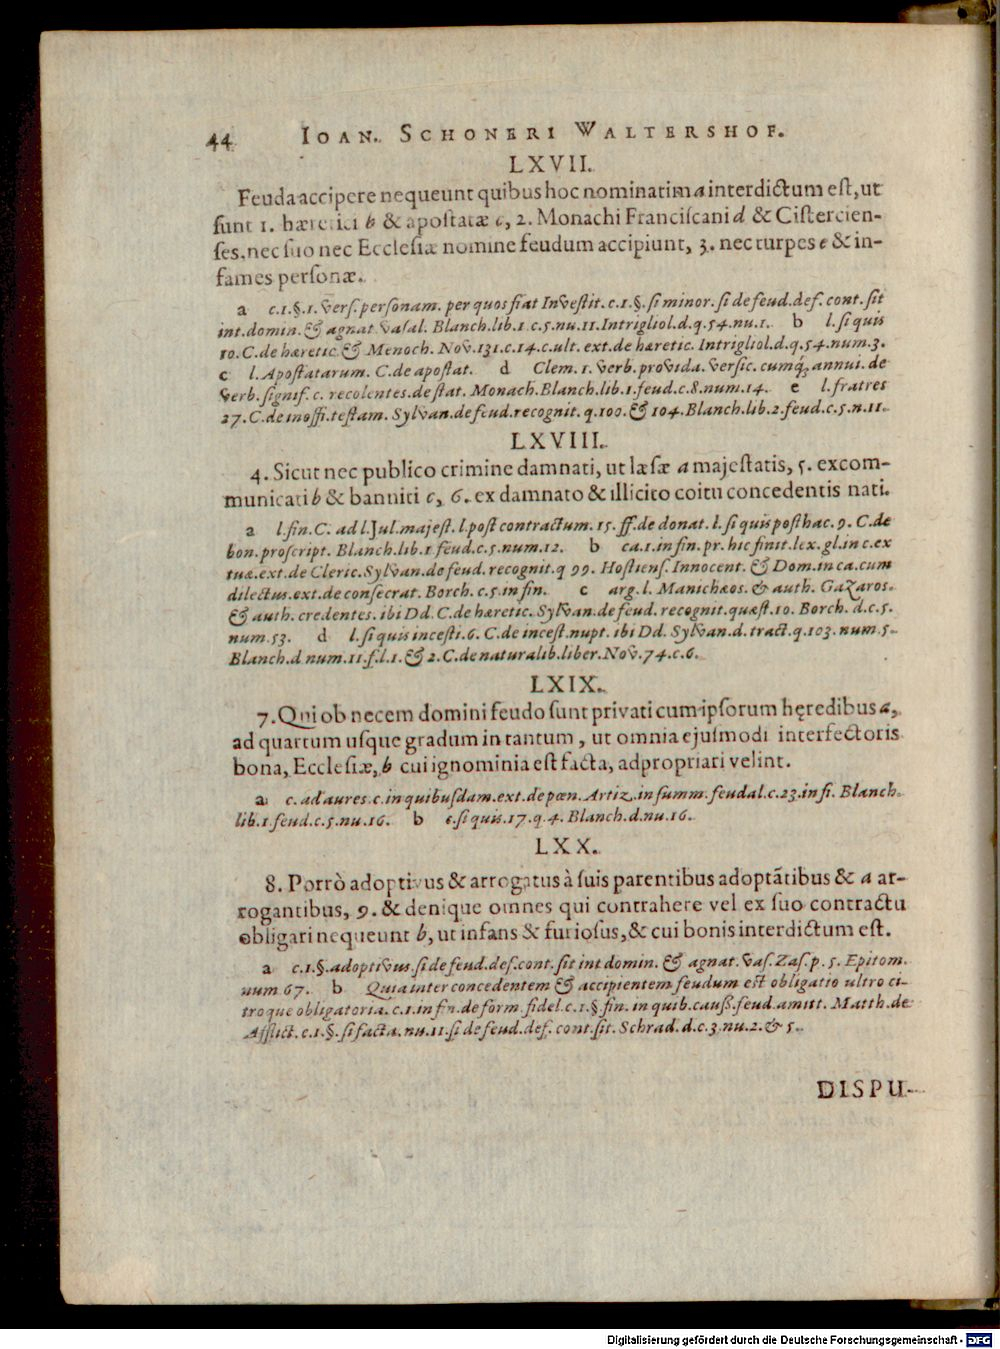 44 IOAN. SCHONERI WALTERSHOF.
LXVII.
Feuda accipere nequeunt quibus hoc nominatim a interdictum est, ut
sunt 1. hæretici b & apostatæ c, 2. Monachi Franciscani d & Cistercien-
ses, nec suo nec Ecclesiæ nomine feudum accipiunt, 3. nec turpes e & in-
fames personæ.
a c.1.§.1. vers. personam. per quos fiat Investit. c.1.§. si minor. si de feud. def. cont. sit
int. domin. & agnat. vasal. Blanch. lib.1. c.5. nu.11. Intrigliol. d.q.54. nu.1. b l. si quis
10. C. de hæretic. & Menoch. Nov. 131. c.14. c. ult. ext. de hæretic. Intrigliol. d.q.54. num.3.
c l. Apostatarum. C. de apostat. d Clem. 1. verb. provida. versic. cumq́; annui. de
verb. signif. c. recolentes. de stat. Monach. Blanch. lib.1. feud. c.8. num.14. e l. fratres
27. C. de inoffi. testam. Sylvan. de feud. recognit. q.100. & 104. Blanch. lib.2. feud. c.5. n.11.
LXVIII.
4. Sicut nec publico crimine damnati, ut læsæ a majestatis, 5. excom-
municati b & banniti c, 6. ex damnato & illicito coitu concedentis nati.
a l. fin. C. ad l. Jul. majest. l. post contractum. 15. ff. de donat. l. si quis posthac. 9. C. de
bon. proscript. Blanch. lib.1. feud. c.5. num.12. b ca.1. in fin. pr. hic finit. lex. gl. in c. ex
tuæ. ext. de Cleric. Sylvan. de feud. recognit. q 99. Hostiens. Innocent. & Dom. in ca. cum
dilectus. ext. de consecrat. Borch. c.5. in fin. c arg. l. Manichæos. & auth. Gazaros.
& auth. credentes. ibi Dd. C. de hæretic. Sylvan. de feud. recognit. quæst.10. Borch. d.c.5.
num.53. d l. si quis incesti. 6. C. de incest. nupt. ibi Dd. Sylvan. d. tract. q.103. num.5.
Blanch. d num.11. f. l.1. & 2. C. de naturalib. liber. Nov. 74. c.6.
LXIX.
7. Qui ob necem domini feudo sunt privati cum ipsorum hęredibus a,
ad quartum usque gradum in tantum, ut omnia ejusmodi interfectoris
bona, Ecclesiæ, b cui ignominia est facta, adpropriari velint.
a c. ad aures. c. in quibusdam. ext. de pœn. Artiz. in summ. feudal. c.23. in fi. Blanch.
lib.1. feud. c.5. nu.16. b c. si quis. 17. q.4. Blanch. d. nu.16.
LXX.
8. Porrò adoptivus & arrogatus à suis parentibus adoptātibus & a ar-
rogantibus, 9. & denique omnes qui contrahere vel ex suo contractu
obligari nequeunt b, ut infans & furiosus, & cui bonis interdictum est.
a c.1.§. adoptivus. si de feud. def. cont. sit int domin. & agnat. vas. Zas. p. 5. Epitom.
num 67. b Quia inter concedentem & accipientem feudum est obligatio ultro ci-
troque obligatoria. c.1. in fin. de form. fidel. c.1.§ fin. in quib. cauß. feud. amitt. Matth. de
Afflict. c.1.§. si facta. nu.11. si de feud. def. cont. sit. Schrad. d.c.3. nu.2. & 5.
DISPU-
Digitalisierung gefördert durch die Deutsche Forschungsgemeinschaft - DFG